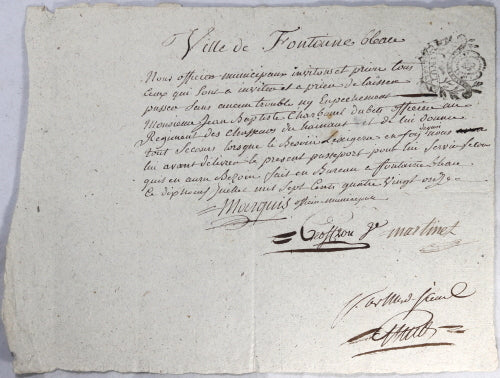 Ville de Fontenne bleau
Nous officiers municipaux invitons et prions tous
ceux qui sont a inviter et a prier de laisser
passer sans aucun trouble ny Empechement
Monsieur Jean Baptiste officier au
Regiment des Chasseurs du hainaut et de lui donner
tout Secours lorsque le Besoin en foy nous
lui avons délivré le present passport pour lui Servir
quis en aura Besoin fait en Bureau a
Ce Juillet mil Sept Cents quatre vingt onze
Marquis officier municipal
Geoffroy martinet